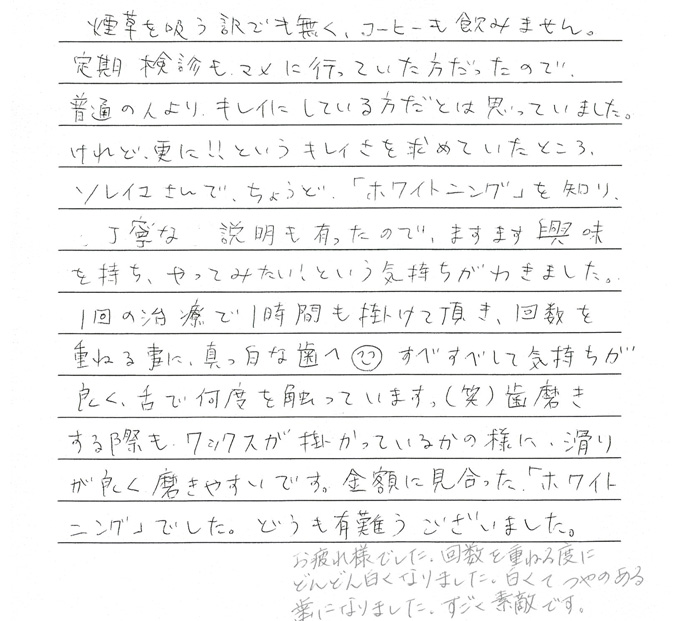 煙草を吸う訳でも無く、コーヒーも飲みません。
定期検診も、マメに行っていた方だったので、
普通の人より、キレイにしている方だとは思っていました。
けれど、更に!!というキレイさを求めていたところ、
ソレイユさんで、ちょうど、「ホワイトニング」を知り、
丁寧な 説明も有ったので、ますます興味
を持ち、やってみたい!という気持ちがわきました。
1回の治療で1時間も掛けて頂き、1回数を
重ねる事に、真っ白な歯へ すべすべして気持ちが
良く、舌で何度を触っています。(笑)歯磨き
する際も、ワックスが掛かっているかの様に、滑り
が良く磨きやすいです。金額に見合った、「ホワイト
ニング」でした。どうも有難うございました。
お疲れ様でした。回数を重ねる度に
どんどん白くなりました。白くてつやのある
歯になりました。すごく素敵です。